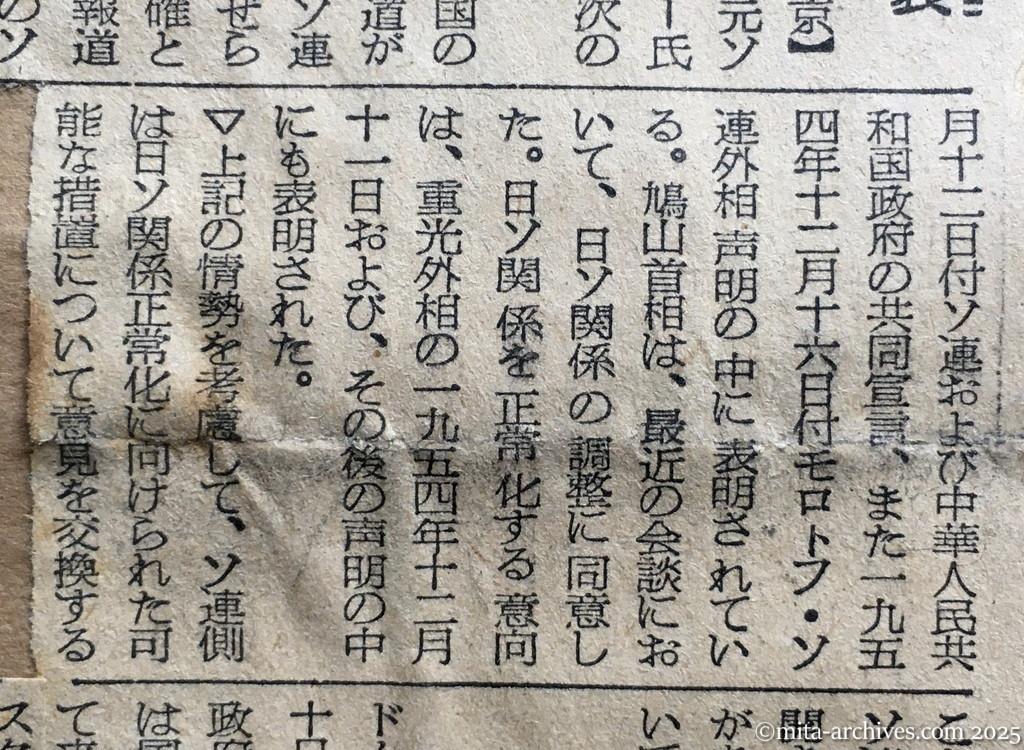 表
京】
元ソ
ー氏
次の
国の
道が
ソ連
せら
確と
報道
のソ
月十二日付ソ連および中華人民共
和国政府の共同宣言、また一九五
四年十二月十六日付モロトフ・ソ
連外相声明の中に表明されてい
る。鳩山首相は、最近の会談にお
いて、日ソ関係の調整に同意し
た。日ソ関係を正常化する意向
は、重光外相の一九五四年十二月
十一日および、その後の声明の中
にも表明された。
▽上記の情勢を考慮して、ソ連側
は日ソ関係正常化に向けられた可
能な措置について意見を交換する
こ
ソ
開
が
い
ド
十日
政府
は国
て来
スタ
©mita-archives.com 2025